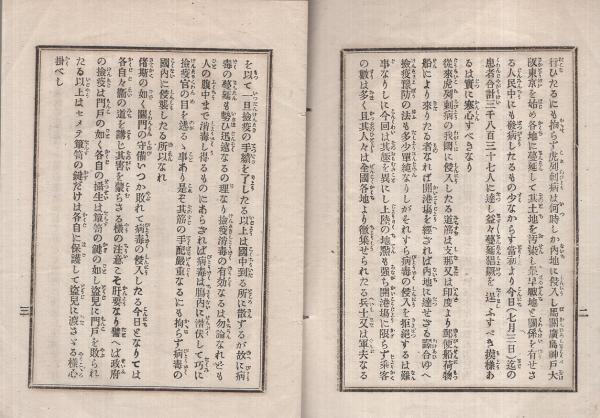 行ひたるにも拘らず虎列刺病は何時しか内地に侵入し馬關廣島神戸大
阪東京を始め各地に蔓延して其土地を汚染し最早戰地と關係を有せさ
る人民中にも發病したるもの少なからす當初より今日(七月三日)迄の
患者合計三千八百三十七人に達し益々蔓延猖獗を逞ふすへき摸樣あ
るは實に寒心すべきなり
從來虎列刺病の我國に侵入したる道筋は支那又は印度より郵便船荷物
船により來りたる者なれば開港塲を經されば内地に達せさる譯合ゆへ
撿疫豫防の法も多少單純なりしがそれすら病毒の侵入を拒絕するは難
事なりしに今回は其趣を異にし上陸の地點も强ち開港塲に限らず乘客
の數は多く且其人々は全國各地より徴集せられたる兵士又は軍夫なる
二
を以て一旦撿疫の手續を了したる以上は國中到る所に散ずるが故に病
毒の蔓延も勢ひ迅速なるの理なり撿疫消毒の有効なるは勿論なれども
人の腹中まで消毒し得るものにあらされば病毒は膓内に潜伏して巧に
撿疫官の目を遁るゝ事あり是を其筋の手配嚴重なるにも拘らず病毒の
國内に侵襲したる所以なれ
偖斯の如く關門の守備いつか敗れて病毒の侵入したる今日となりては
各自々衞の道を講じ其害を蒙らさる樣の注意こそ肝要なり譬へば政府
の撿疫は門戸の如く各自の攝生は簞笥の鍵の如し盜兒に門戸を敗られ
たる以上はセメテ簞笥の鍵だけは各自に保護して盜兒に渡さゞる樣心
掛べし
三